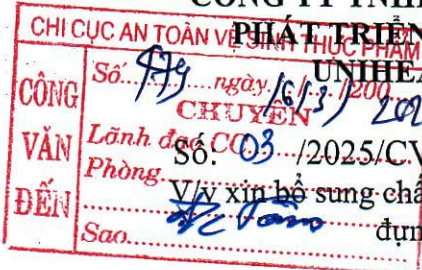 CÔNG TY TNHH
PHÁT TRIỂN
UNIHEA
CHI CỤC AN TOÀN VỆ SINH THỰC PHẨM
CÔNG VĂN ĐẾN
Số: ngày 16/3/200
CHUYỂN
Lãnh đạo CC
Phòng
Sao
Số: 03 /2025/CV
V/v xin bổ sung chấ
đựn